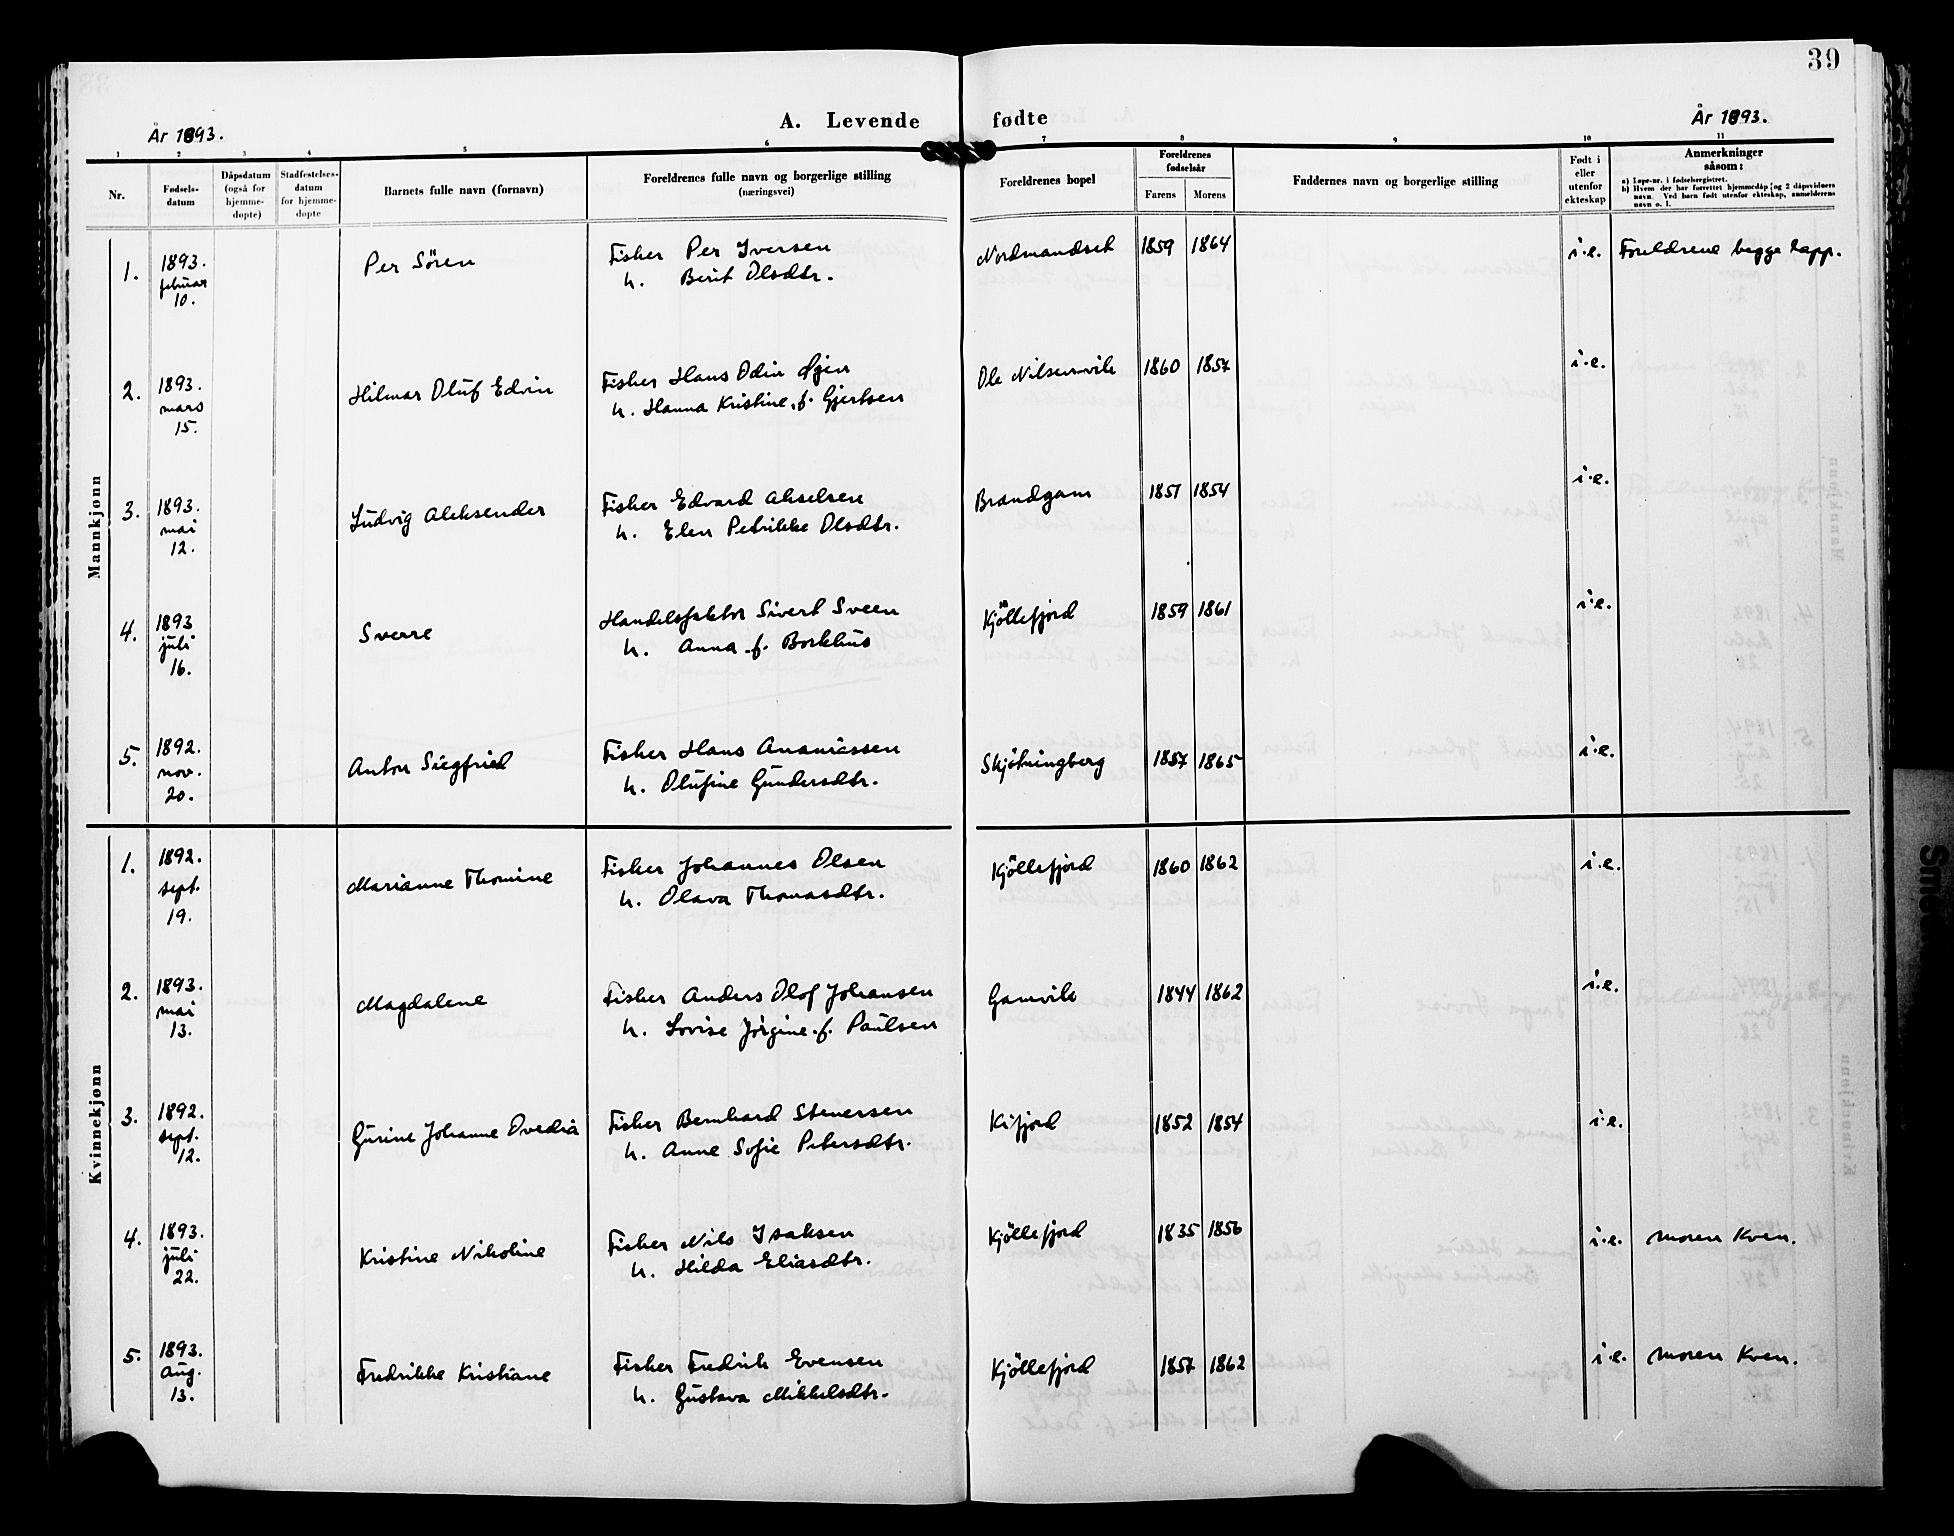 39
År 1893.
A. Levende fødte
År 1893.
1 2 3 4 5 6 7 8 9 10 11
Nr.
Fødsels-
datum
Dåpsdatum
(også for
hjemme-
døpte)
Stadfestelses-
datum
for hjemme-
døpte
Barnets fulle navn (fornavn)
Foreldrenes fulle navn og borgerlige stilling
(næringsvei)
Foreldrenes bopel
Foreldrenes
fødselsår
Farens Morens
Faddernes navn og borgerlige stilling
Født i
eller
utenfor
ekteskap
Anmerkninger
såsom:
a) Løpe-nr. i fødselsregistret.
b) Hvem der har forrettet hjemmedåp og 2 dåpsvidners
navn. Ved barn født utenfor ekteskap, anmelderens
navn o. l.
Mannkjønn
1. 1893. februar 10. Per Sören Fisker Per Iversen Nordmandset 1859 1864 i.e. Foreldrene begge lapp.
h. Berit Olsdtr.
2. 1893. mars 15. Hilmar Oluf Edvin Fisker Hans Odin Øien Ole Nilsenvik 1860 1857 i.e.
h. Hanna Kristine f. Gjertsen
3. 1893. mai 12. Ludvig Aleksender Fisker Edvard Akselsen Brandgam 1851 1854 i.e.
h. Elen Petrikke Olsdtr.
4. 1893 juli 16. Sverre Handelsfaktor Sivert Sveen Kjöllefjord 1859 1861 i.e.
h. Anna f. Borkhus
5. 1892. nov. 20. Anton Siegfried Fisker Hans Ananiassen Skjötningberg 1857 1865 i.e.
h. Olufine Gundersdtr.
Kvinnekjønn
1. 1892. sept. 19. Marianne Thomine Fisker Johannes Olsen Kjöllefjord 1860 1862 i.e.
h. Olava Thomasdtr.
2. 1893. mai 13. Magdalene Fisker Anders Olof Johansen Gamvik 1844 1862 i.e.
h. Lovise Jörgine f. Paulsen
3. 1892. sept. 12. Gurine Johanne Ovedia Fisker Bernhard Stenersen Kifjord 1852 1854 i.e.
h. Anne Sofie Petersdtr.
4. 1893. juli 22. Kristine Nikoline Fisker Nils Isaksen Kjöllefjord 1835 1856 i.e. Moren Kven.
h. Hilda Eliasdtr.
5. 1893. aug. 13. Fredrikke Kristiane Fisker Fredrik Evensen Kjöllefjord 1857 1862 i.e. Moren Kven.
h. Gustava Mikkelsdtr.